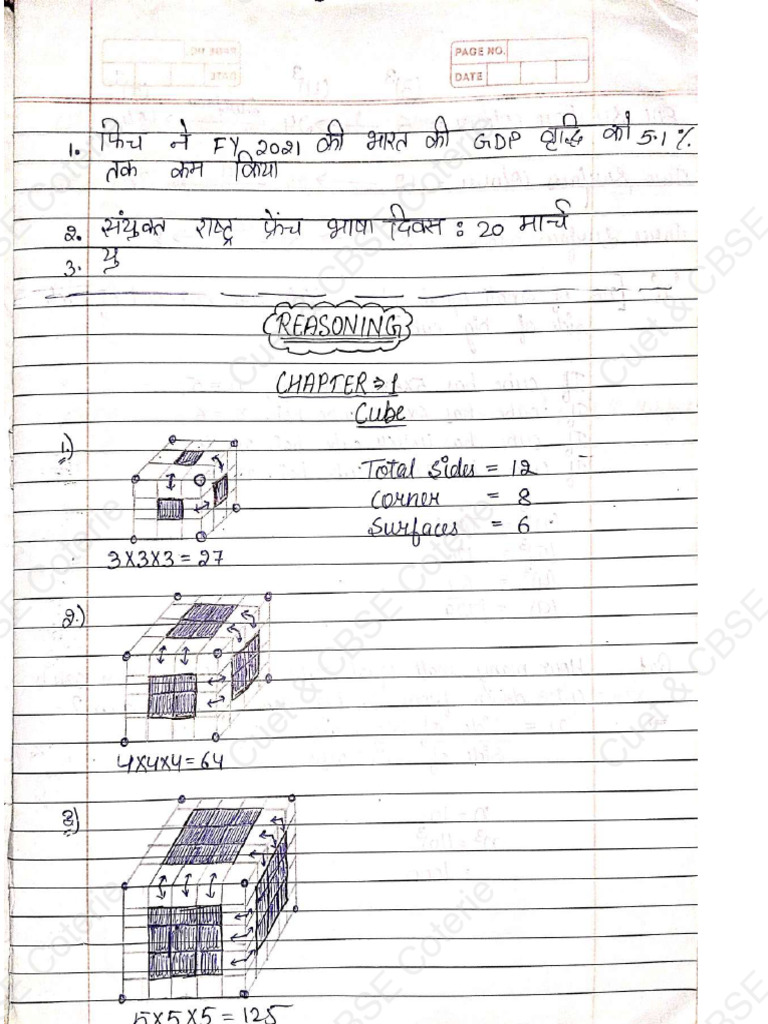 PAGE NO.
DATE
1. फिच ने FY 2021 की भारत की GDP वृद्धि को 5.1%
तक कम किया
2. संयुक्त राष्ट्र फ्रेंच भाषा दिवस : 20 मार्च
3. यु
REASONING
CHAPTER ⇒ 1
Cube
1.)
Total Sides = 12
Corner = 8
Surfaces = 6
3×3×3 = 27
2.)
4×4×4 = 64
3)
5×5×5 = 125
Cuet & CBSE Coterie